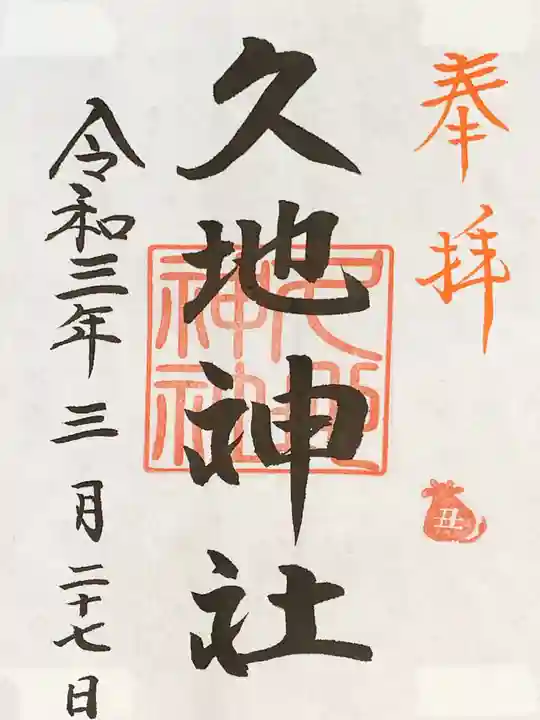 奉拝
久地神社
久地神社
丑
令和三年三月二十七日